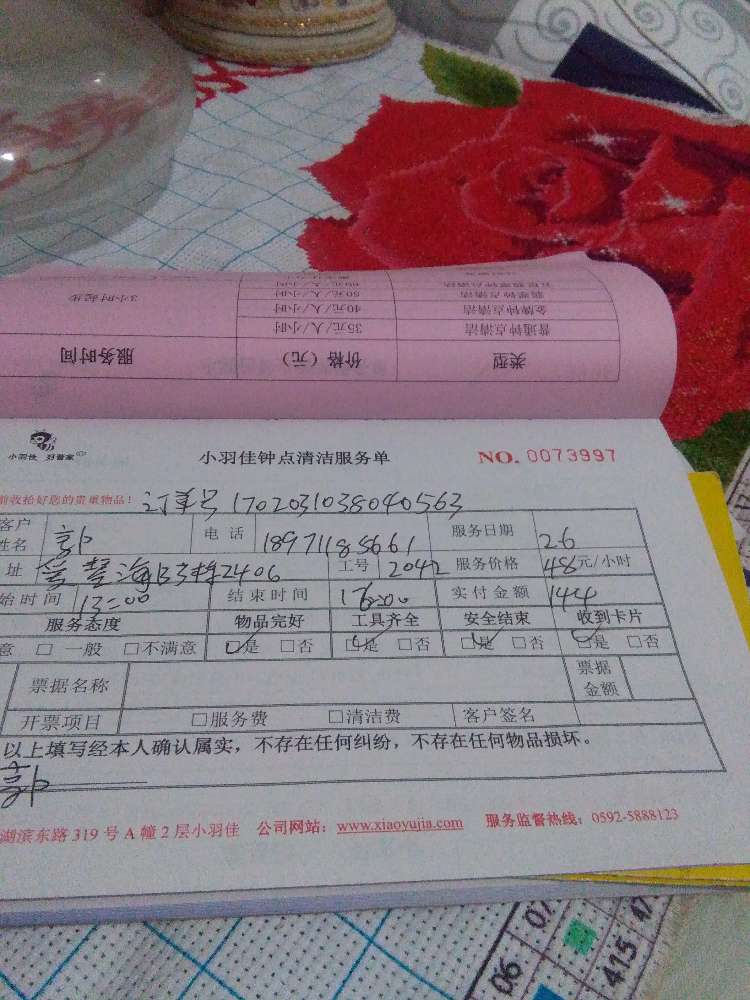 3小时起步
60元/人/小时
50元/人/小时
40元/人/小时
金牌钟点清洁
35元/人/小时
普通钟点清洁
服务时间
价格（元）
类型
小羽佳 好管家
小羽佳钟点清洁服务单
NO. 0073997
前收拾好您的贵重物品！
订单号 1702031038040563
客户姓名 郭 电话 18971185661 服务日期 2.6
址 2406 工号 2042 服务价格 48元/小时
始时间 13:00 结束时间 16:00 实付金额 144
服务态度 物品完好 工具齐全 安全结束 收到卡片
意 □ 一般 □不满意 □是 □否 □是 □否 □是 □否 □是 □否
票据名称 票据金额
开票项目 □服务费 □清洁费 客户签名
以上填写经本人确认属实，不存在任何纠纷，不存在任何物品损坏。
郭
湖滨东路 319 号 A 幢 2 层小羽佳 公司网站：www.xiaoyujia.com 服务监督热线：0592-5888123
06 07
415